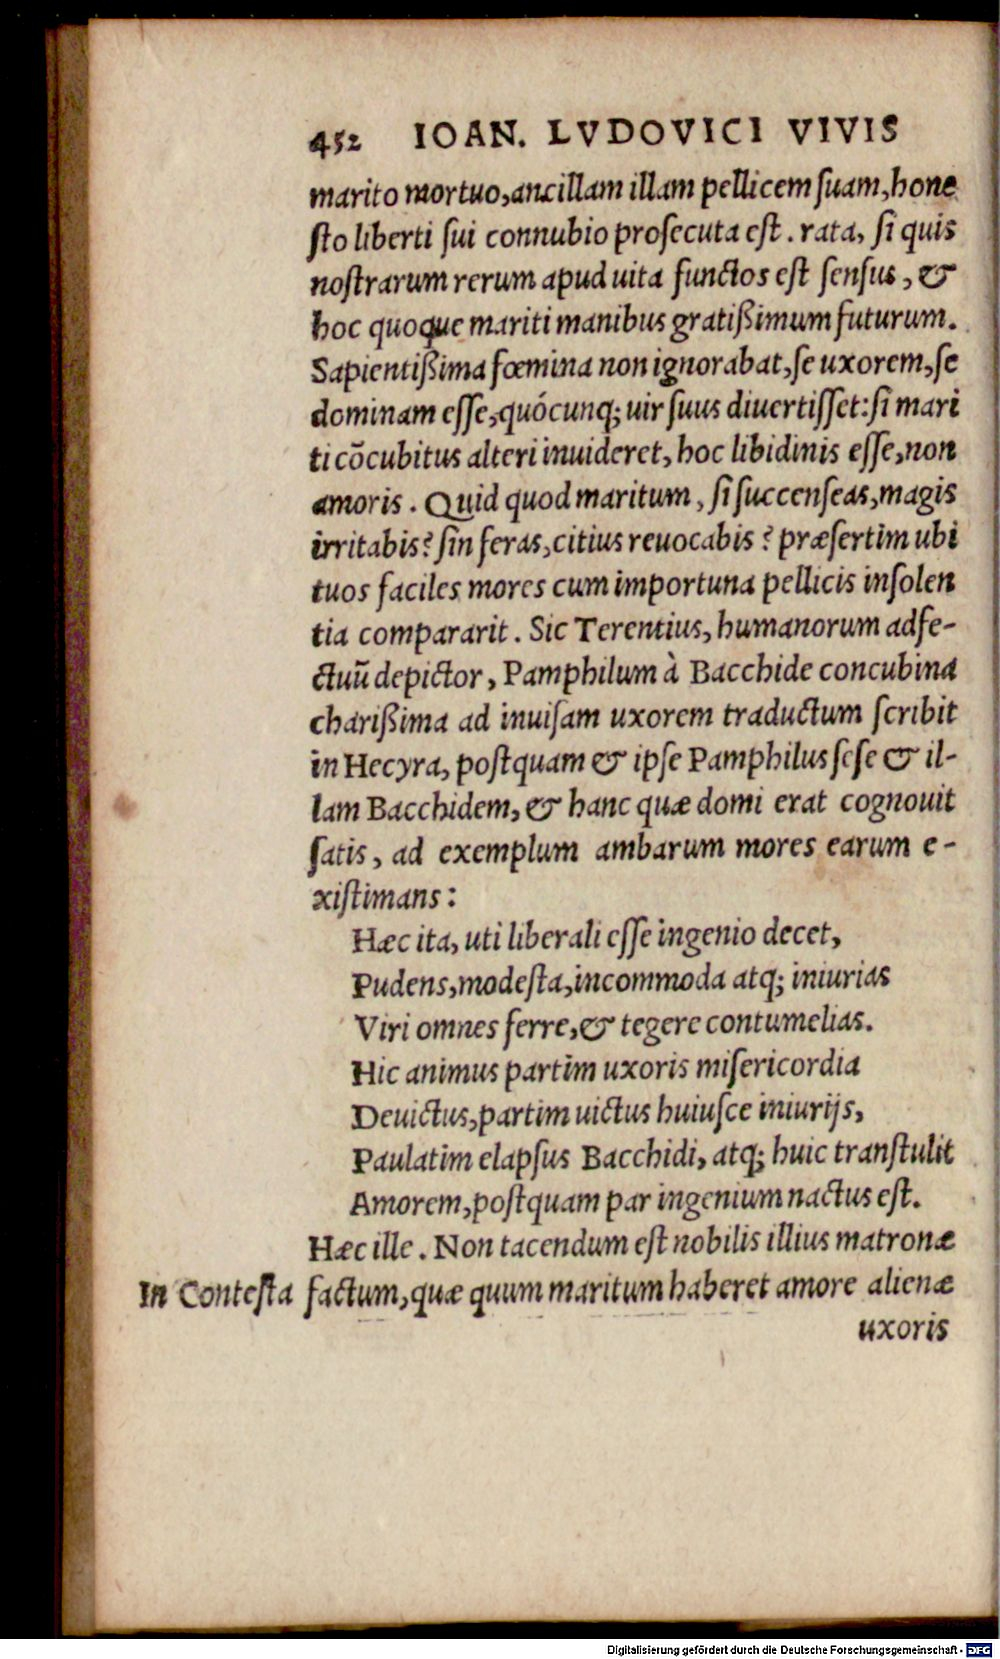 452 IOAN. LVDOVICI VIVIS
marito mortuo, ancillam illam pellicem ſuam, hone
ſto liberti ſui connubio proſecuta eſt. rata, ſi quis
noſtrarum rerum apud uita functos eſt ſenſus, &
hoc quoque mariti manibus gratißimum futurum.
Sapientißima fœmina non ignorabat, ſe uxorem, ſe
dominam eſſe, quócunq; uir ſuus diuertiſſet: ſi mari
ti cōcubitus alteri inuideret, hoc libidinis eſſe, non
amoris. Quid quod maritum, ſi ſuccenſeas, magis
irritabis? ſin feras, citius reuocabis? præſertim ubi
tuos faciles mores cum importuna pellicis inſolen
tia compararit. Sic Terentius, humanorum adfe-
ctuū depictor, Pamphilum à Bacchide concubina
charißima ad inuiſam uxorem traductum ſcribit
in Hecyra, poſtquam & ipſe Pamphilus ſeſe & il-
lam Bacchidem, & hanc quæ domi erat cognouit
ſatis, ad exemplum ambarum mores earum e-
xiſtimans:
Hæc ita, uti liberali eſſe ingenio decet,
Pudens, modeſta, incommoda atq; iniurias
Viri omnes ferre, & tegere contumelias.
Hic animus partim uxoris miſericordia
Deuictus, partim uictus huiuſce iniurijs,
Paulatim elapſus Bacchidi, atq; huic tranſtulit
Amorem, poſtquam par ingenium nactus eſt.
Hæc ille. Non tacendum eſt nobilis illius matronæ
In Conteſta factum, quæ quum maritum haberet amore alienæ
uxoris
Digitalisierung gefördert durch die Deutsche Forschungsgemeinschaft - DFG